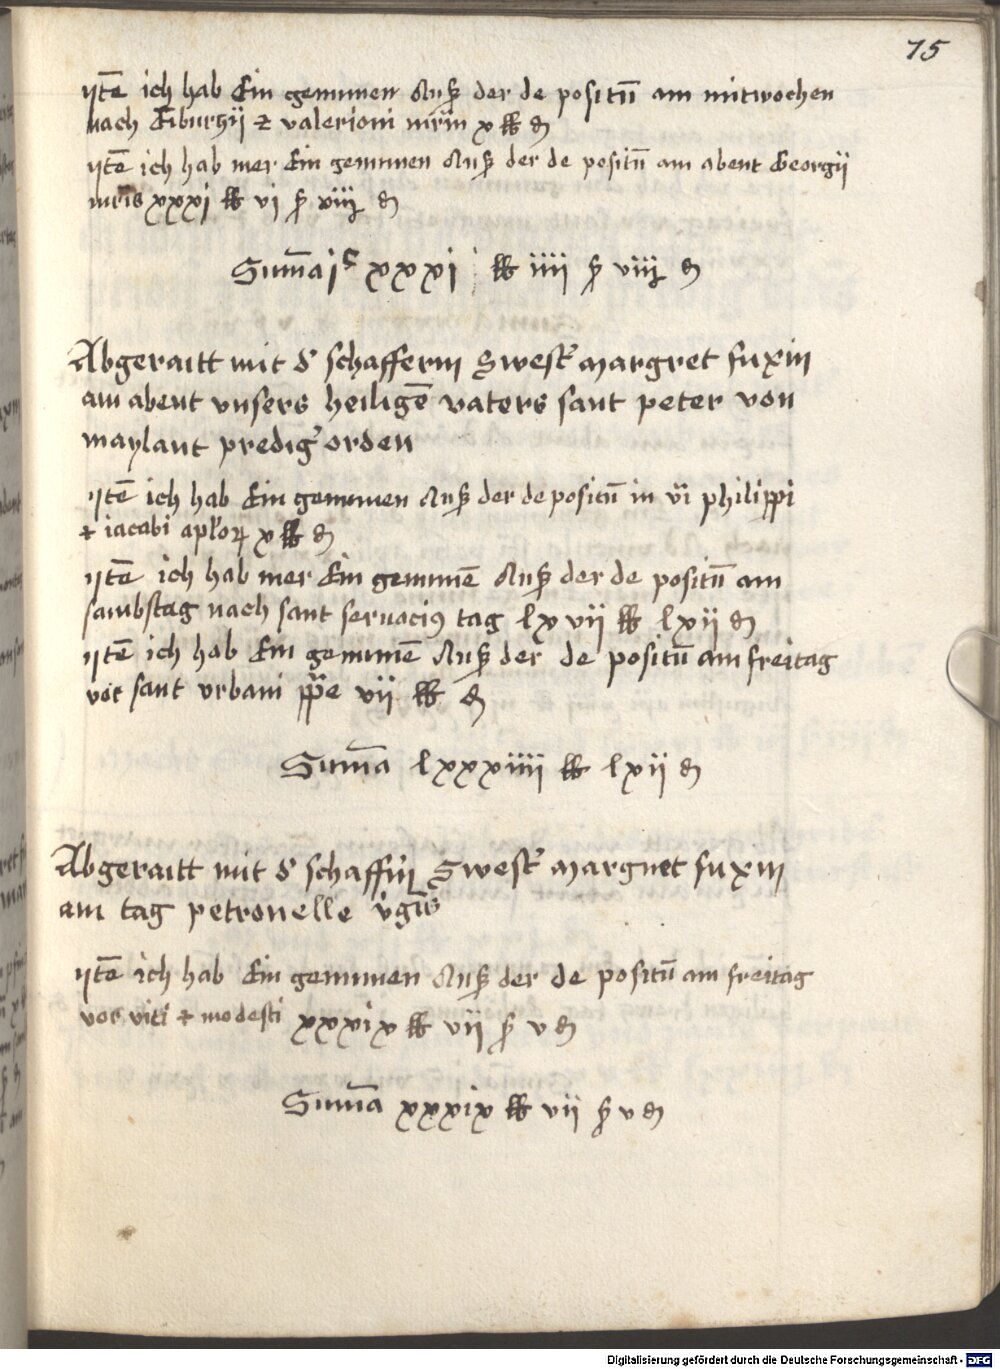 75
Itē ich hab Ein genumen Auß der de positū am mitwochen
nach Tiburtzij et valeriani mrīm x ℔ ₰
Itē ich hab mer Ein genumen Auß der de positū am abent Georgij
mris xxxi ℔ vi ß viij ₰
Suma jᶜ xxxi ℔ iiii ß viij ₰
Abgeraitt mit d' schafferin Swest' Margret fuxin
am abent vnsers heiligē vaters sant peter von
maylant predig' orden
Itē ich hab Ein genumen Auß der de positū in vi philippi
et iacobi aplorꝝ x ℔ ₰
Itē ich hab mer Ein genumē Auß der de positū am
sambstag nach sant seruacius tag lxvii ℔ lxii ₰
Itē ich hab Ein genumē Auß der de positū am freitag
vor sant vrbani ppe vii ℔ ₰
Suma lxxxiiii ℔ lxii ₰
Abgeraitt mit d' schaff'in Swest' Margret fuxin
am tag petronelle v'gīs
Itē ich hab Ein genumen Auß der de positū am freitag
vor viti et modesti xxxix ℔ vii ß v ₰
Suma xxxix ℔ vii ß v ₰
Digitalisierung gefördert durch die Deutsche Forschungsgemeinschaft - DFG